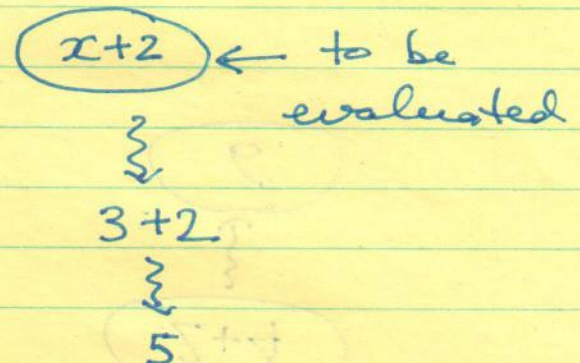 x+2 ← to be
evaluated
3+2
5